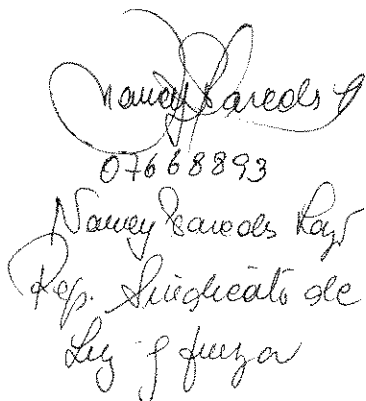 Nancy Paredes
07668893
Nancy Paredes
Rep. Sindicato de
Luz y fuerza